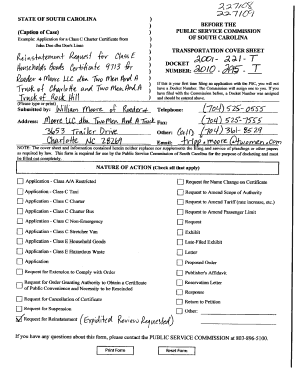 227108
227109
STATE OF SOUTH CAROLINA
(Caption of Case)
Example: Application for a Class C Charter Certificate from
John Doe dba Doe's Limo
Reinstatement Request for Class E
Households Goods Certificate 9713 for
Reeder & Moore LLC dba Two Men And A
Truck of Charlotte and Two Men And A
Truck of Rock Hill
BEFORE THE
PUBLIC SERVICE COMMISSION
OF SOUTH CAROLINA
TRANSPORTATION COVER SHEET
DOCKET 2001-221-T
NUMBER: 2010-295-T
If this is your first time filing an application with the PSC, you will not
have a Docket Number. The Commission will assign one to you. If you
have filed with the Commission before, a Docket Number was assigned
and should be entered above.
(Please type or print)
Submitted by: William Moore of Reeder &
Address: Moore LLC dba Two Men And A Truck
3653 Trailer Drive
Charlotte NC 28269
Telephone: (704) 525-0555
Fax: (704) 525-7555
Other: (cell) (704) 361-8529
Email: tripp.moore@twomen.com
NOTE: The cover sheet and information contained herein neither replaces nor supplements the filing and service of pleadings or other papers
as required by law. This form is required for use by the Public Service Commission of South Carolina for the purpose of docketing and must
be filled out completely.
NATURE OF ACTION (Check all that apply)
Application - Class A/A Restricted
Application - Class C Taxi
Application - Class C Charter
Application - Class C Charter Bus
Application - Class C Non-Emergency
Application - Class C Stretcher Van
Application - Class E Household Goods
Application - Class E Hazardous Waste
Application
Request for Extension to Comply with Order
Request for Order Granting Authority to Obtain a Certificate
of Public Convenience and Necessity to be Rescinded
Request for Cancellation of Certificate
Request for Suspension
Request for Reinstatement (Expidited Review Requested)
Request for Name Change on Certificate
Request to Amend Scope of Authority
Request to Amend Tariff (rate increase, etc.)
Request to Amend Passenger Limit
Request
Exhibit
Late-Filed Exhibit
Letter
Proposed Order
Publisher's Affidavit
Reservation Letter
Response
Return to Petition
Other:
If you have any questions about this form, please contact the PUBLIC SERVICE COMMISSION at 803-896-5100.
Print Form
Reset Form